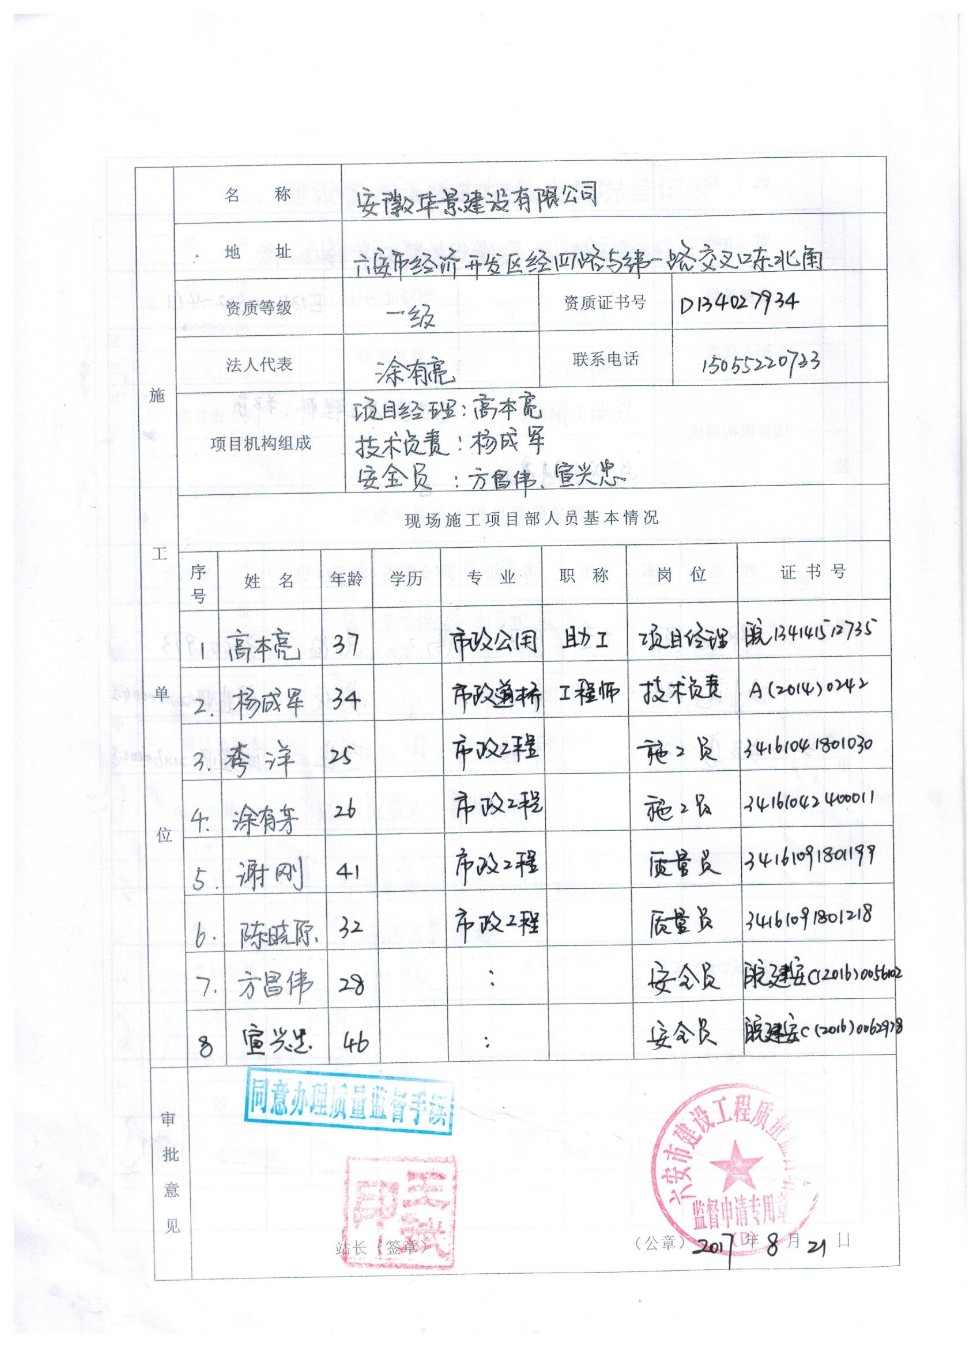 名 称 安徽华景建设有限公司
地 址 六安市经济开发区经四路与纬一路交叉口东北角
资质等级 一级 资质证书号 D134027934
法人代表 涂有亮 联系电话 15055220723
项目机构组成 项目经理:高本亮
技术负责:杨成军
安全员:方昌伟、宣兴忠
现场施工项目部人员基本情况
序号 姓名 年龄 学历 专业 职称 岗位 证书号
1. 高本亮 37 市政公用 助工 项目经理 皖134141512735
2. 杨成军 34 市政道桥 工程师 技术负责 A(2014)0242
3. 李洋 25 市政工程 施工员 34161041801030
4. 涂有芳 26 市政工程 施工员 34161042400011
5. 谢刚 41 市政工程 质量员 34161091801199
6. 陈晓原 32 市政工程 质量员 34161091801218
7. 方昌伟 28 : 安全员 皖建安C(2016)0056102
8 宣兴忠 46 : 安全员 皖建安C(2016)0062978
施工单位
审批意见
同意办理质量监督手续
六安市建设工程质量监
监督申请专用章
站长(签章)
(公章) 2017年8月21日